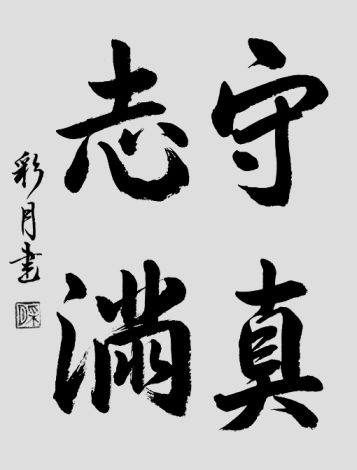 守真
志滿
彩月書